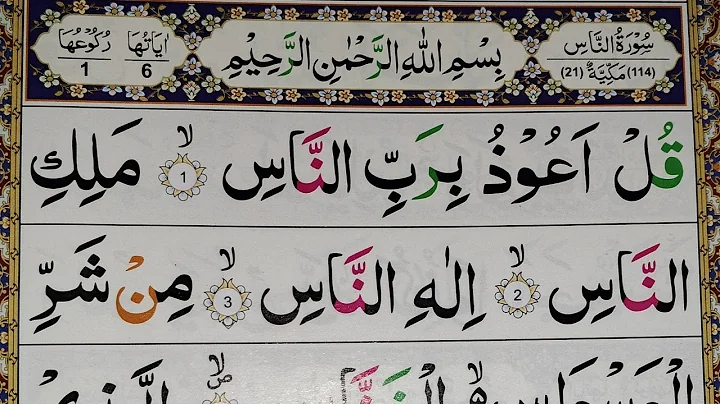 سُوْرَةُ النَّاسِ
(114) مَكِّيَّةٌ (21)
بِسْمِ اللهِ الرَّحْمٰنِ الرَّحِيْمِ
اٰيَاتُهَا 6
رُكُوْعُهَا 1
قُلْ اَعُوْذُ بِرَبِّ النَّاسِ ۙ 1 مَلِكِ
النَّاسِ ۙ 2 اِلٰهِ النَّاسِ ۙ 3 مِنْ شَرِّ
الْوَسْوَاسِ ۙ الْخَنَّاسِ ۪ۙ الَّذِيْ